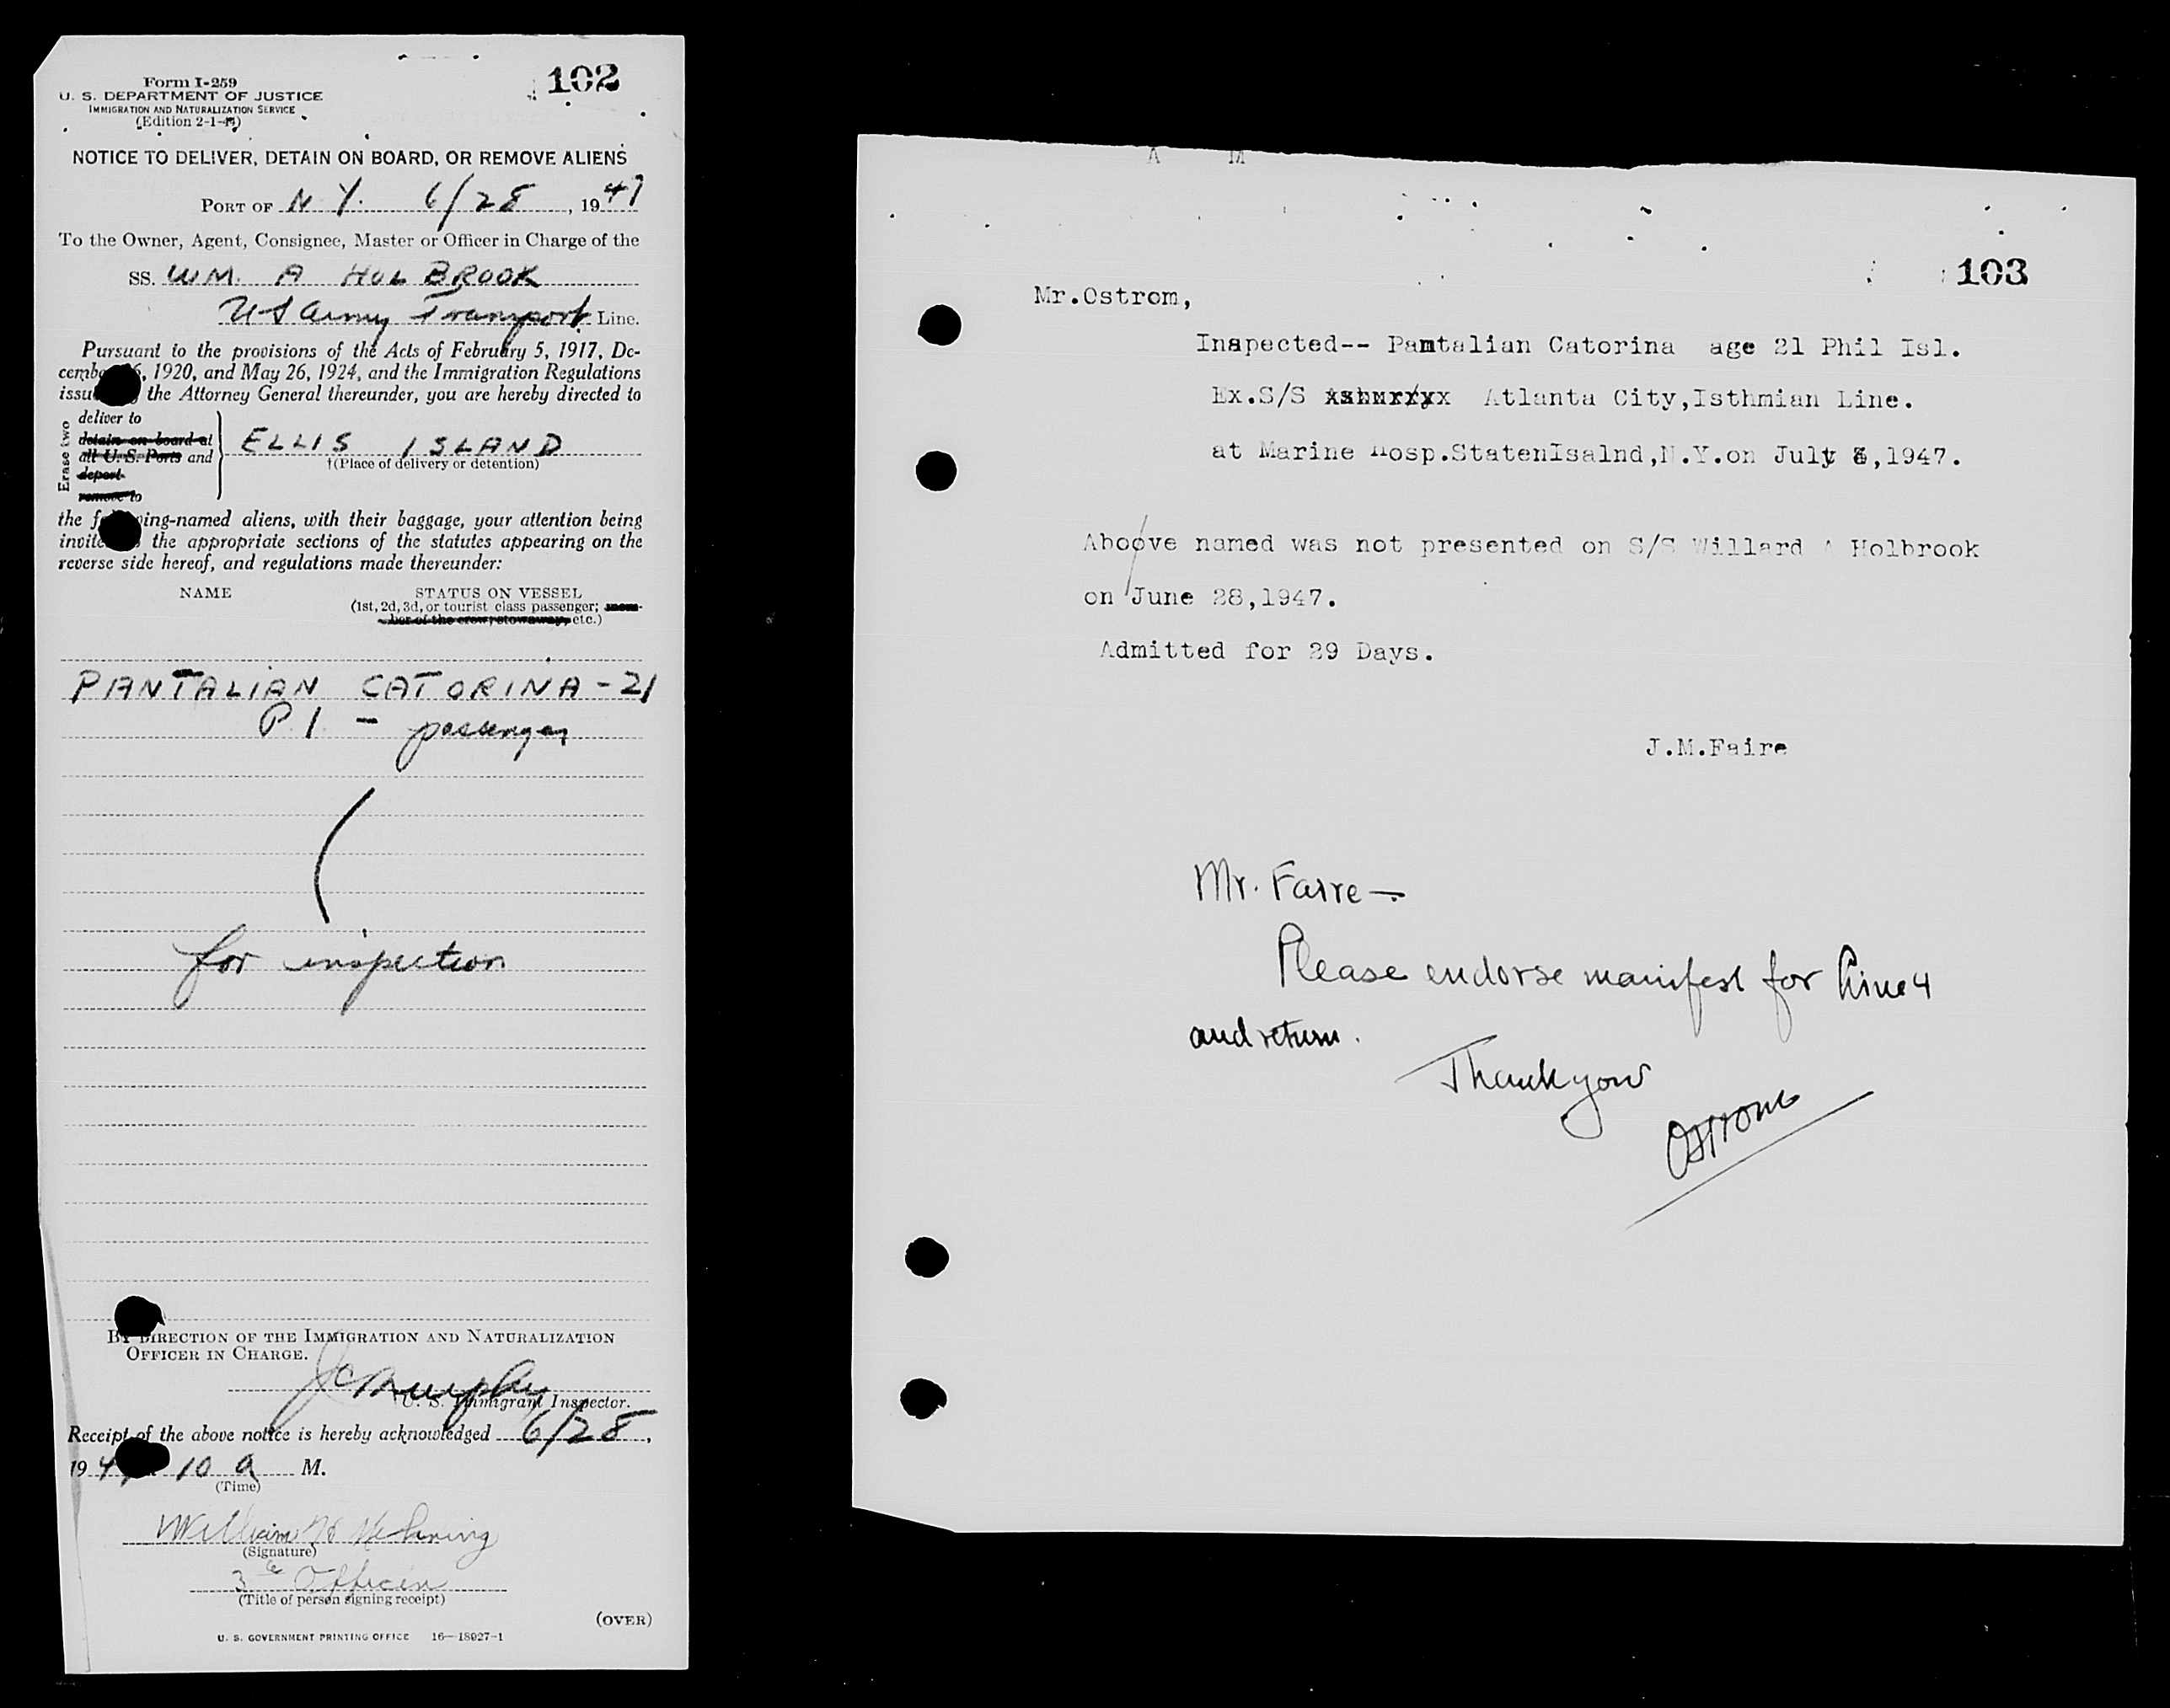 Form I-259
U. S. DEPARTMENT OF JUSTICE
IMMIGRATION AND NATURALIZATION SERVICE
(Edition 2-1-
102
NOTICE TO DELIVER, DETAIN ON BOARD, OR REMOVE ALIENS
PORT OF N.Y. 6/28, 1947
To the Owner, Agent, Consignee, Master or Officer in Charge of the
SS. WM. A HOLBROOK
US Army Transport Line.
Pursuant to the provisions of the Acts of February 5, 1917, De-
, 1920, and May 26, 1924, and the Immigration Regulations
the Attorney General thereunder, you are hereby directed to
Erase two
deliver to
detain on board at
all U. S. Ports and
deport
remove to
ELLIS ISLAND
†(Place of delivery or detention)
the following-named aliens, with their baggage, your attention being
the appropriate sections of the statutes appearing on the
reverse side hereof, and regulations made thereunder:
NAME STATUS ON VESSEL
(1st, 2d, 3d, or tourist class passenger; mem-
ber of the crew, stowaway, etc.)
PANTALIAN CATORINA - 21
P.I. - passenger
for inspection
BY DIRECTION OF THE IMMIGRATION AND NATURALIZATION
OFFICER IN CHARGE.
JC Murphy
U. S. Immigrant Inspector.
Receipt of the above notice is hereby acknowledged 6/28,
19 4 10 a M.
(Time)
William
(Signature)
3 Officer
(Title of person signing receipt)
(OVER)
U. S. GOVERNMENT PRINTING OFFICE 16—18027-1
A M
103
Mr.Ostrom,
Inspected-- Pantalian Catorina age 21 Phil Isl.
Ex.S/S Atlanta City,Isthmian Line.
at Marine Hosp.StatenIsalnd,N.Y.on July ,1947.
Aboove named was not presented on S/S Willard A Holbrook
on June 28,1947.
Admitted for 29 Days.
J.M.Faire
Mr. Faire —
Please endorse manifest for line 4
and return.
Thank you
Ostrom